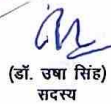 (डॉ. उषा सिंह)
सदस्य